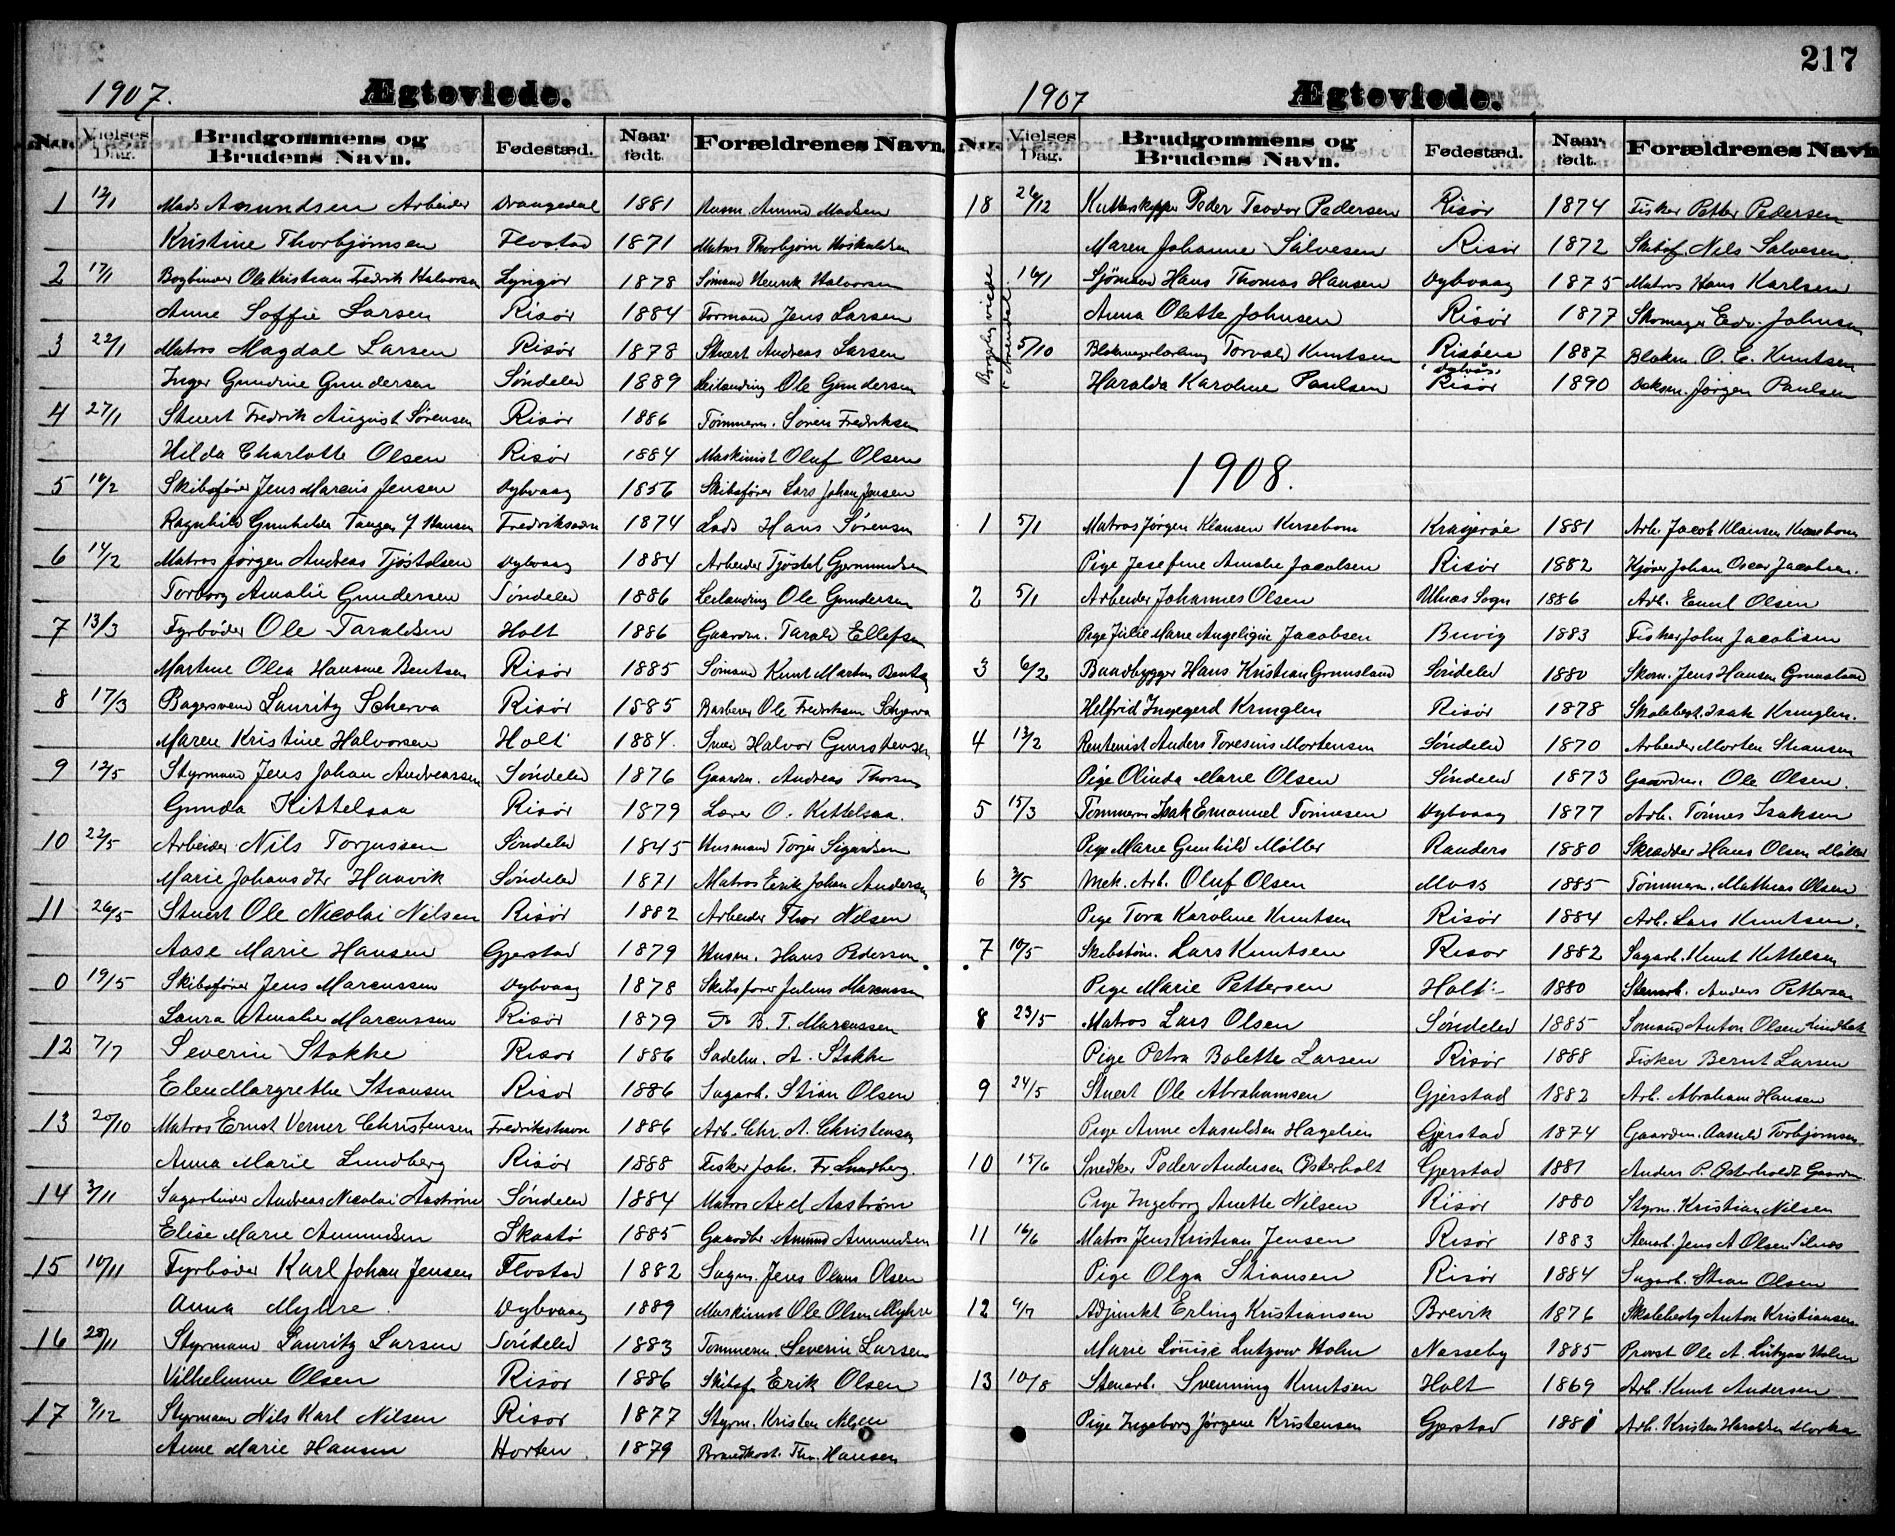 1907.
Ægteviede.
Nr.
Vielses Dag.
Brudgommens og Brudens Navn.
Fødested.
Naar født.
Forældrenes Navn.
1 12/1 Mads Amundsen Arbeider Drangedal 1881 Husm. Amund Madsen
Kristine Thorbjørnsen Flostad 1871 Matros Thorbjørn
2 17/1 Bogbinder Ole Kristian Fredrik Halvorsen Lyngør 1878 Sømand Henrik Halvorsen
Anne Soffie Larsen Risør 1884 Formand Jens Larsen
3 22/1 Matros Magdal Larsen Risør 1878 Stuert Andreas Larsen
Inger Gundine Gundersen Søndeled 1889 Leilænding Ole Gundersen
4 27/1 Stuert Fredrik August Sørensen Risør 1886 Tømmerm. Søren Fredriksen
Hilda Charlotte Olsen Risør 1884 Maskinist Oluf Olsen
5 10/2 Skibsfører Jens Marcus Jensen Dybvaag 1856 Skibsfører Lars Johan Jensen
Ragnhild Gunhilda Tangen f. Hansen Fredriksværn 1874 Lods Hans Sørensen
6 14/2 Matros Jørgen Andreas Tjøstolsen Dybvaag 1884 Arbeider Tjøstel Gjermundsen
Torborg Amalie Gundersen Søndeled 1886 Leilænding Ole Gundersen
7 13/3 Fyrbøder Ole Taraldsen Holt 1886 Gaardm. Tarald Ellefsen
Martine Olea Hansine Bentsen Risør 1885 Sømand Knut Martin Bentsen
8 17/3 Bagersvend Lauritz Scherva Risør 1885 Barberer Ole Fredriksen Scherva
Maren Kristine Halvorsen Holt 1884. Smed Halvor Gunstensen
9 12/5 Styrmand Jens Johan Andreassen Søndeled 1876 Gaardm. Andreas Thorsen
Gunda Kittelsaa Risør 1879 Lærer O. Kittelsaa.
10 22/5 Arbeider Nils Torjussen Søndeled 1845 Husmand Torjus Sigurdsen
Marie Johansdtr Haavik Søndeled 1871 Matros Erik Johan Andersen
11 26/5 Stuert Ole Nicolai Nilsen Risør 1882 Arbeider Thor Nilsen
Aase Marie Hansen Gjerstad 1879 Husm. Hans Pedersen
0 19/5 Skibsfører Jens Marcussen Dybvaag 1878 Skibsfører Julius Marcussen
Laura Amalie Marcussen Risør 1879 Do B. T. Marcussen
12 7/7 Severin Stokke Risør 1886 Sadelm. A. Stokke
Elen Margrethe Stiansen Risør 1886 Sagarb. Stian Olsen
13 20/10 Matros Ernst Verner Christensen Fredrikshavn 1886 Arb. Chr. A. Christensen
Anna Marie Lundberg Risør 1888 Fisker Joh. Fr. Lundberg.
14 3/11 Sagarbeider Andreas Nicolai Aastrøm Søndeled 1884 Matros Axel Aastrøm
Elise Marie Amundsen Skaatø 1885 Amund Amundsen
15 10/11 Fyrbøder Karl Johan Jensen Flostad 1882 Sagm. Jens Olaus Olsen
Anna Myhre. Dybvaag 1889 Maskinist Ole Olsen Myhre
16 28/11 Styrmand Lauritz Larsen Søndeled 1883 Tømmerm Severin Larsen
Vilhelmine Olsen Risør 1886 Skibsf. Erik Olsen
17 9/12 Styrmand Nils Karl Nilsen Risør 1877 Styrm. Kristen Nilsen
Anne Marie Hansen Horten. 1879 Brandkost. Th. Hansen
217
1907
Ægteviede.
Nr.
Vielses Dag.
Brudgommens og Brudens Navn.
Fødested.
Naar født.
Forældrenes Navn
18 26/12 Kutterskipper Peder Teodor Pedersen Risør 1874 Fisker Petter Pedersen
Maren Johanne Salvesen Risør 1872 Skibsf. Nils Salvesen.
Borgerlig viede i Arendal
16/1 Sjømand Hans Thomas Hansen Dybvaag 1875 Matros Hans Karlsen
Anna Olette Johnsen Risør 1877 Skomager Edv. Johnsen
5/10 Torvald Knutsen Risøen i Dybvaag 1887 Blokm. O. C. Knutsen
Haralda Karoline Paulsen Risør 1890 Jørgen Paulsen
1908.
1 5/1 Matros Jørgen Klausen Kirsebom Kragerøe 1881 Arb. Jacob Klausen Kirsebom
Pige Josefine Amalie Jacobsen Risør 1882 Kjører Johan Oscar Jacobsen.
2 5/1 Arbeider Johannes Olsen Ulnæs Sogn 1886 Arb. Emil Olsen
Pige Julie Marie Angeligin Jacobsen Buvig 1883 Fisker John Jacobsen
3 6/2 Baadbygger Hans Kristian Grunsland Søndeled 1880 Skom. Jens Hansen Grunsland
Helfrid Ingegerd Kringlen Risør 1878 Skolebest. Isak Kringlen.
4 13/2 Rentenist Anders Toresius Mortensen Søndeled 1870 Arbeider Morten Stiansen
Pige Olinda Marie Olsen Søndeled 1873 Gaardm. Ole Olsen.
5 15/3 Tømmerm Isak Emanuel Tønnesen Dybvaag 1877 Arb. Tønnes Isaksen
Pige Marie Gunhild Møller Randers 1880 Skrædder Hans Olsen Møller
6 3/5 Mek. Arb. Oluf Olsen Moss 1885 Tømmerm. Mathias Olsen
Pige Tora Karoline Knutsen Risør 1884 Arb. Lars Knutsen.
7 10/5 Skibstøm. Lars Knutsen Risør 1882 Sagarb. Knut Kittelsen
Pige Marie Pettersen Holt 1880 Stenarb. Anders Pettersen
8 23/5 Matros Lars Olsen Søndeled 1885 Sømand Anton Olsen Lindbak
Pige Petra Bolette Larsen Risør 1888 Fisker Bernt Larsen
9 24/5 Stuert Ole Abrahamsen Gjerstad 1882 Arb. Abraham Hansen
Pige Anne Aasuldsen Hagelien Gjerstad 1874 Gaardm. Aasuld Torbjørnsen
10 15/6 Snedker Peder Andersen Østerholt Gjerstad 1881 Anders P. Østerholdt Gaardm.
Pige Ingeborg Anette Nilsen Risør 1880 Styrm. Kristian Nilsen
11 16/6 Matros Jens Kristian Jensen Risør 1883 Stenarb. Jens A. Olsen
Pige Olga Stiansen Risør 1884 Sagarb. Stian Olsen
12 6/7 Adjunkt Erling Kristiansen Brevik 1876 Skolebesty Anton Kristiansen
Marie Louise Lutzow Holm Nasseby 1885 Provst Ole A. Lutzow Holm
13 10/8 Stenarb. Svenning Knutsen Holt 1869 Arb. Knut Andersen
Pige Ingeborg Jørgine Kristensen Gjerstad 1881 Arb. Kristen Haraldsen